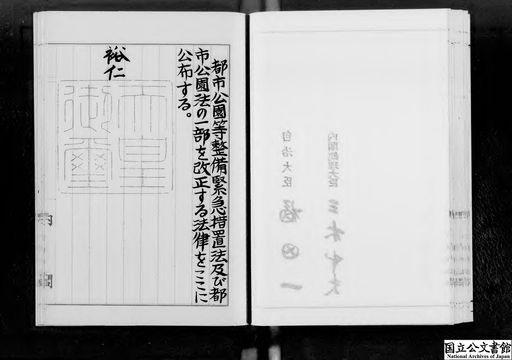 都市公園等整備緊急措置法及び都
市公園法の一部を改正する法律をここに
公布する。
裕仁
天皇
御璽
内閣
内閣総理大臣
自治大臣
国立公文書館
National Archives of Japan